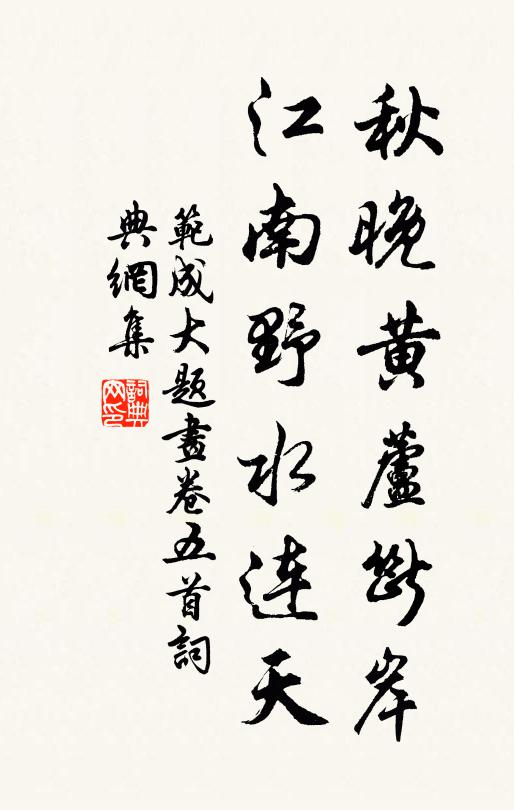 秋晚黄蘆断岸
江南野水連天
範成大題畫卷五首詞
典網集
詞典網印